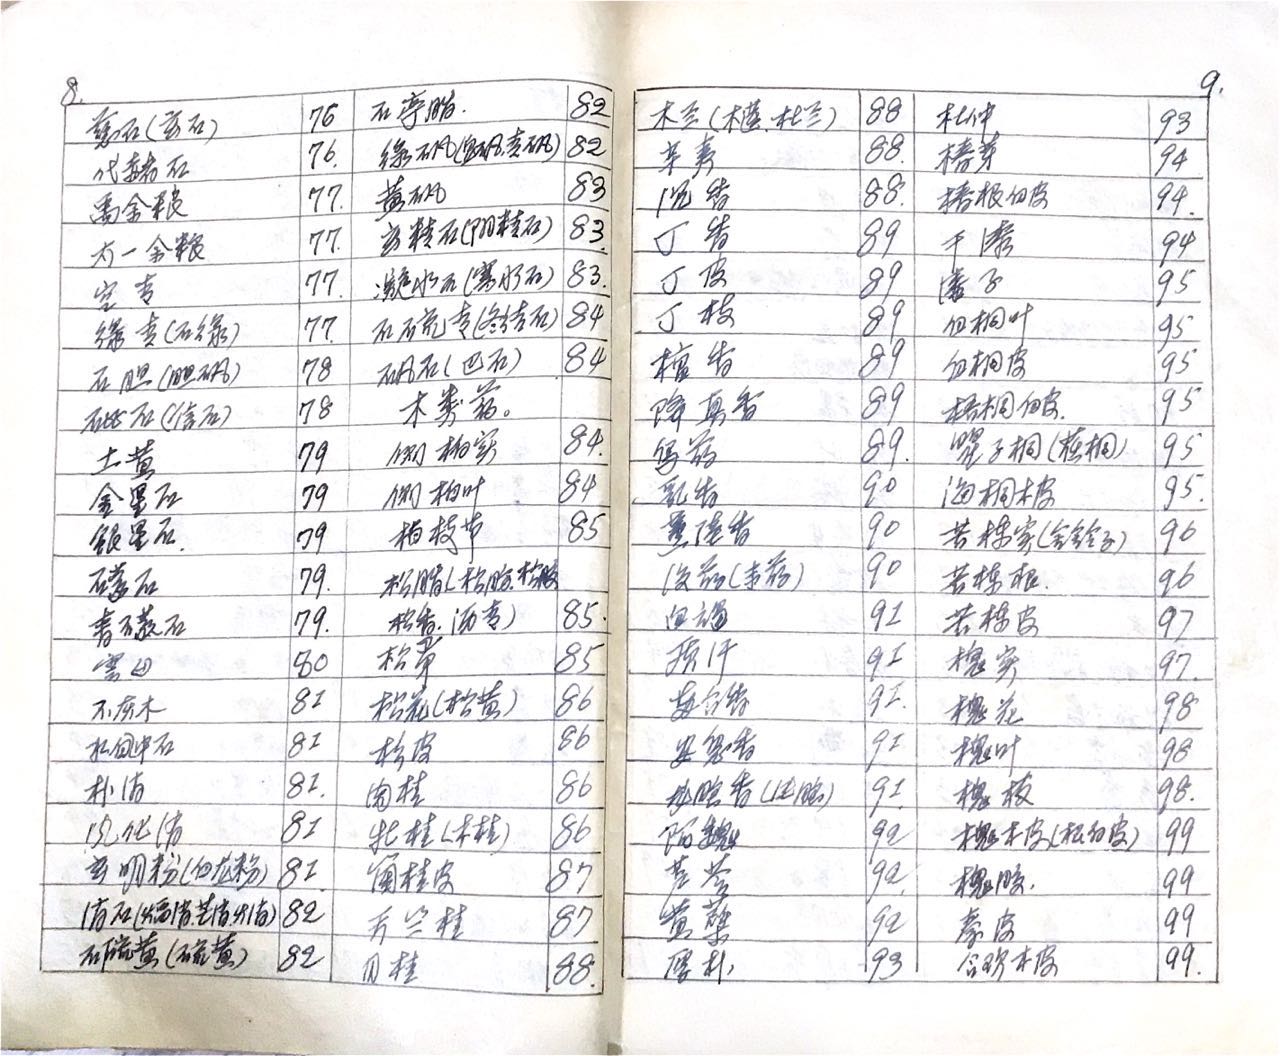 8.
慈石(玄石) 76
代赭石 76.
禹余粮 77.
太一余粮 77.
空青 77.
绿青(石绿) 77.
石胆(胆矾) 78
砒石(信石) 78
土黄 79
金星石 79
银星石. 79
礞石 79.
青礞石 79.
云母 80
不灰木 81
81
朴消 81.
风化消 81
玄明粉(白龙粉) 81.
消石 82
石硫黄(硫黄) 82
石亭脂. 82
绿矾(皂矾.青矾) 82
黄矾 83
玄精石(阴精石) 83.
凝水石(寒水石) 83.
84
矾石(巴石) 84
木类药。
侧柏实 84.
侧柏叶 84
柏枝节 85
松脂(松膏.松胶
松香.沥青) 85.
松节 85
松花(松黄) 86
松皮 86
肉桂 86
牡桂(木桂) 86
筒桂皮 87
天竺桂 87
月桂 88.
9.
木兰(木莲.杜兰) 88
辛夷 88.
沉香 88.
丁香 89
丁皮 89
丁枝 89
檀香 89
降真香 89
乌药 89.
乳香 90
薰陆香 90
没药(末药) 90
血竭 91
质汗 91
苏合香 91.
安息香 91
龙脑香 91.
阿魏 92
芦荟 92.
黄檗 92
厚朴 93
杜仲 93
椿芽 94
椿根白皮 94.
干漆 94
漆子 95
白桐叶 95
白桐皮 95
梧桐白皮. 95
罂子桐(荏桐) 95
海桐皮 95.
苦楝实(金铃子) 96
苦楝根. 96
苦楝皮 97
槐实 97.
槐花 98
槐叶 98
槐枝 98.
槐木皮(根白皮) 99
槐胶. 99
秦皮 99
合欢木皮 99.